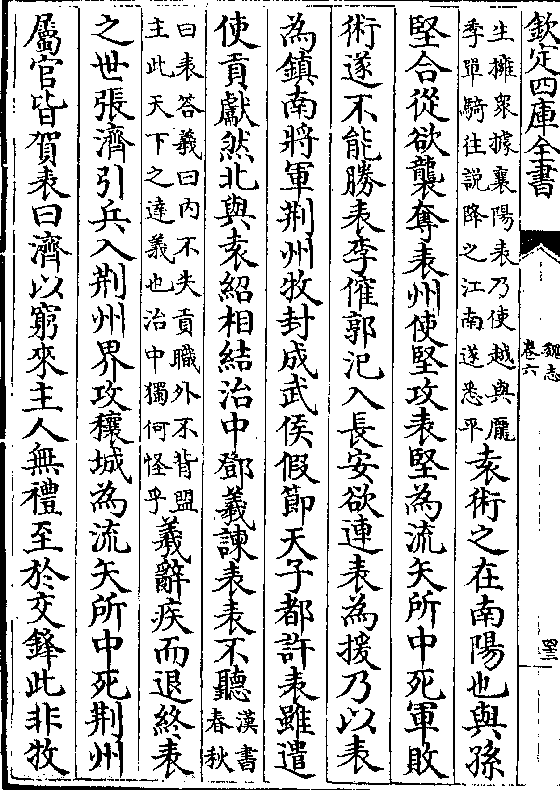 欽定四庫全書
魏志
卷六
生擁衆據襄陽表乃使越與龐
季單騎往說降之江南遂悉平
袁術之在南陽也與孫
堅合從欲襲奪表州使堅攻表堅為流矢所中死軍敗
術遂不能勝表李傕郭汜入長安欲連表為援乃以表
為鎮南將軍荆州牧封成武侯假節天子都許表雖遣
使貢獻然北與袁紹相結治中鄧羲諫表表不聽
漢書
春秋
曰表答羲曰内不失貢職外不背盟
主此天下之達義也治中獨何怪乎
羲辭疾而退終表
之世張濟引兵入荆州界攻穰城為流矢所中死荆州
屬官皆賀表曰濟以窮來主人無禮至於交鋒此非牧